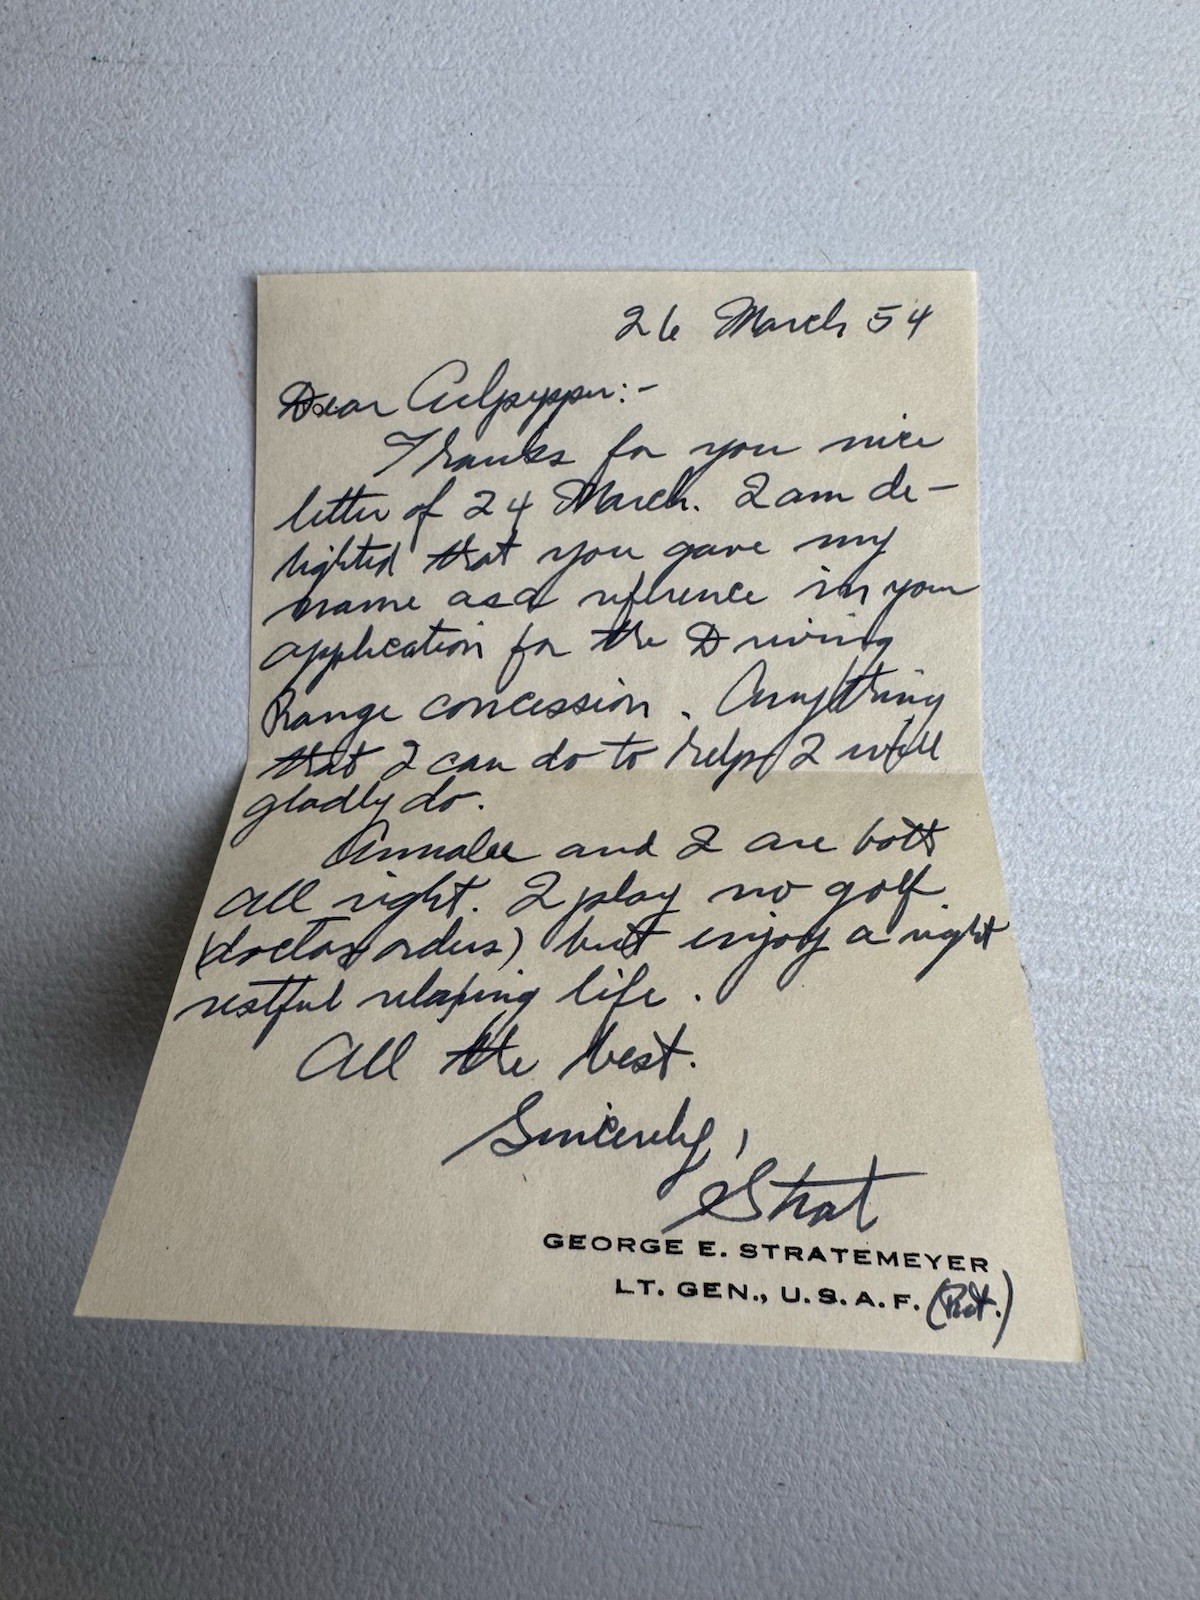 26 March 54
Dear Culpepper:-
Thanks for you nice
letter of 24 March. I am de-
lighted that you gave my
name as a reference in your
application for the Driving
Range concession. Anything
that I can do to help I will
gladly do.
Annalee and I are both
all right. I play no golf
(doctor orders) but enjoy a right
restful relaxing life.
All the best.
Sincerely,
Strat
GEORGE E. STRATEMEYER
LT. GEN., U.S.A.F. (Ret.)